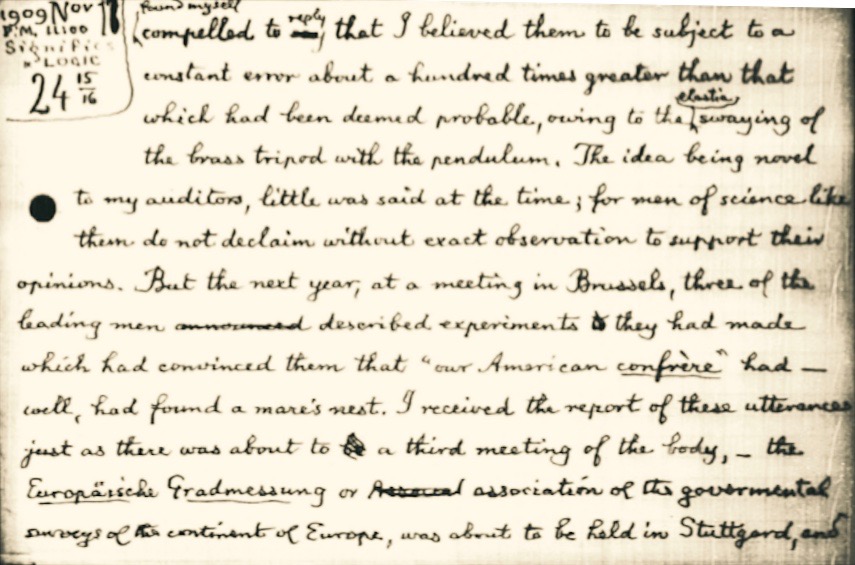 1909 Nov 17
P.M. 11:00
Significs
& LOGIC
24 15/16
found myself
compelled to reply, that I believed them to be subject to a
constant error about a hundred times greater than that
which had been deemed probable, owing to the elastic swaying of
the brass tripod with the pendulum. The idea being novel
to my auditors, little was said at the time; for men of science like
them do not declaim without exact observation to support their
opinions. But the next year, at a meeting in Brussels, three of the
leading men announced described experiments they had made
which had convinced them that "our American confrère" had —
well, had found a mare's nest. I received the report of these utterances
just as there was about to be a third meeting of the body, – the
Europäische Gradmessung or association of the govermental
surveys of the continent of Europe, was about to be held in Stuttgard, and